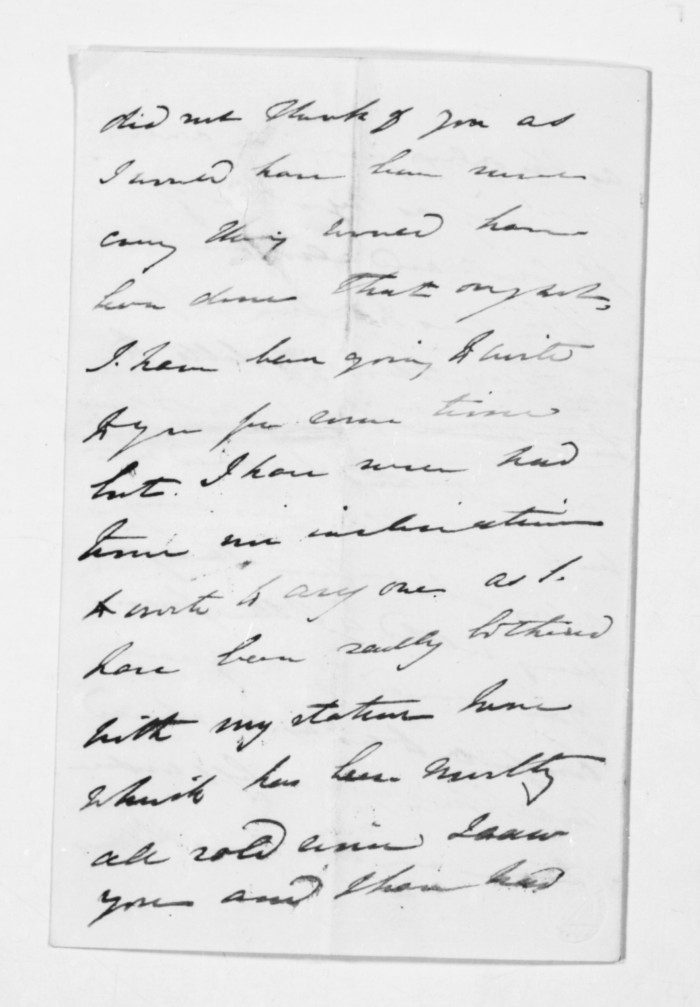 did not think of you as
I would have been sure
every thing would have
been done that ought,
I have been going to write
to you for some time
but I have never had
time nor inclination
to write to any one as I
have been sadly bothered
with my station here
which has been nearly
all sold since I saw
you and I have had